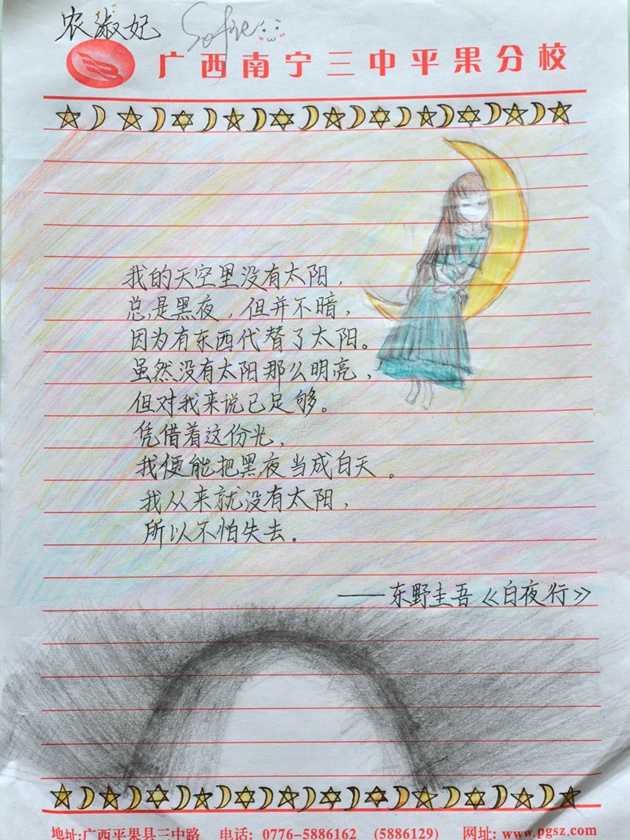 农淑妃 Sofie
广西南宁三中平果分校
我的天空里没有太阳，
总是黑夜，但并不暗，
因为有东西代替了太阳。
虽然没有太阳那么明亮，
但对我来说已足够。
凭借着这份光，
我便能把黑夜当成白天。
我从来就没有太阳，
所以不怕失去。
——东野圭吾《白夜行》
地址:广西平果县三中路 电话: 0776-5886162 (5886129) 网址: www.pgsz.com